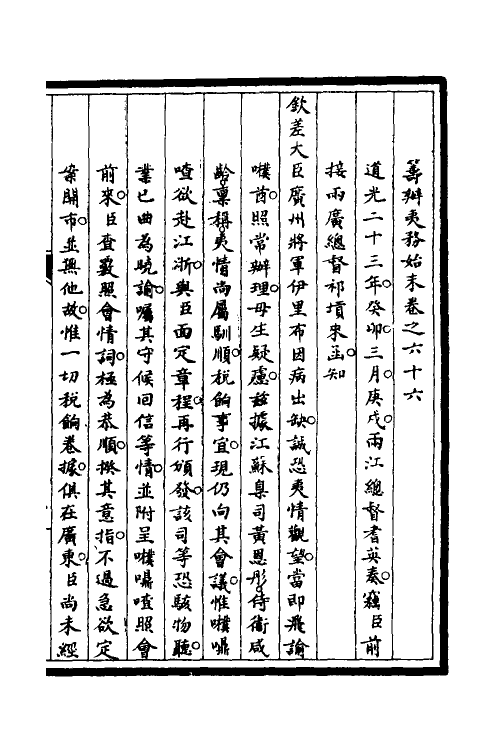 籌辦夷務始末卷之六十六
道光二十三年。癸卯。三月。庚戌。兩江總督耆英奏。竊臣前
接兩廣總督祁墳來函。知
欽差大臣廣州將軍伊里布因病出缺。誠恐夷情觀望。當即飛諭
噗酋。照常辦理。毋生疑慮。茲據江蘇臬司黃恩彤。侍衛咸
齡稟稱。夷情尚屬馴順。稅餉事宜。現仍向其會議。惟噗囑
喳欲赴江浙。與臣面定章程。再行頒發。該司等恐駭物聽。
業已曲為曉諭。囑其守候回信等情。並附呈噗囑喳照會
前來。臣查覈照會情詞。極為恭順。揆其意指。不過急欲定
案開市。並無他故。惟一切稅餉卷據。俱在廣東。臣尚未經